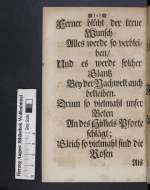 Ferner blüht der treue
Wunsch
Alles werde so verblei-
ben/
Und es werde solcher
Glantz
Bey der Nachwelt auch
beklieben.
Drum so vielmahl unser
Beten
An des Himmels Pforte
schlägt;
Gleich so vielmahl sind die
Rosen
Als
Herzog August Bibliothek Wolfenbüttel